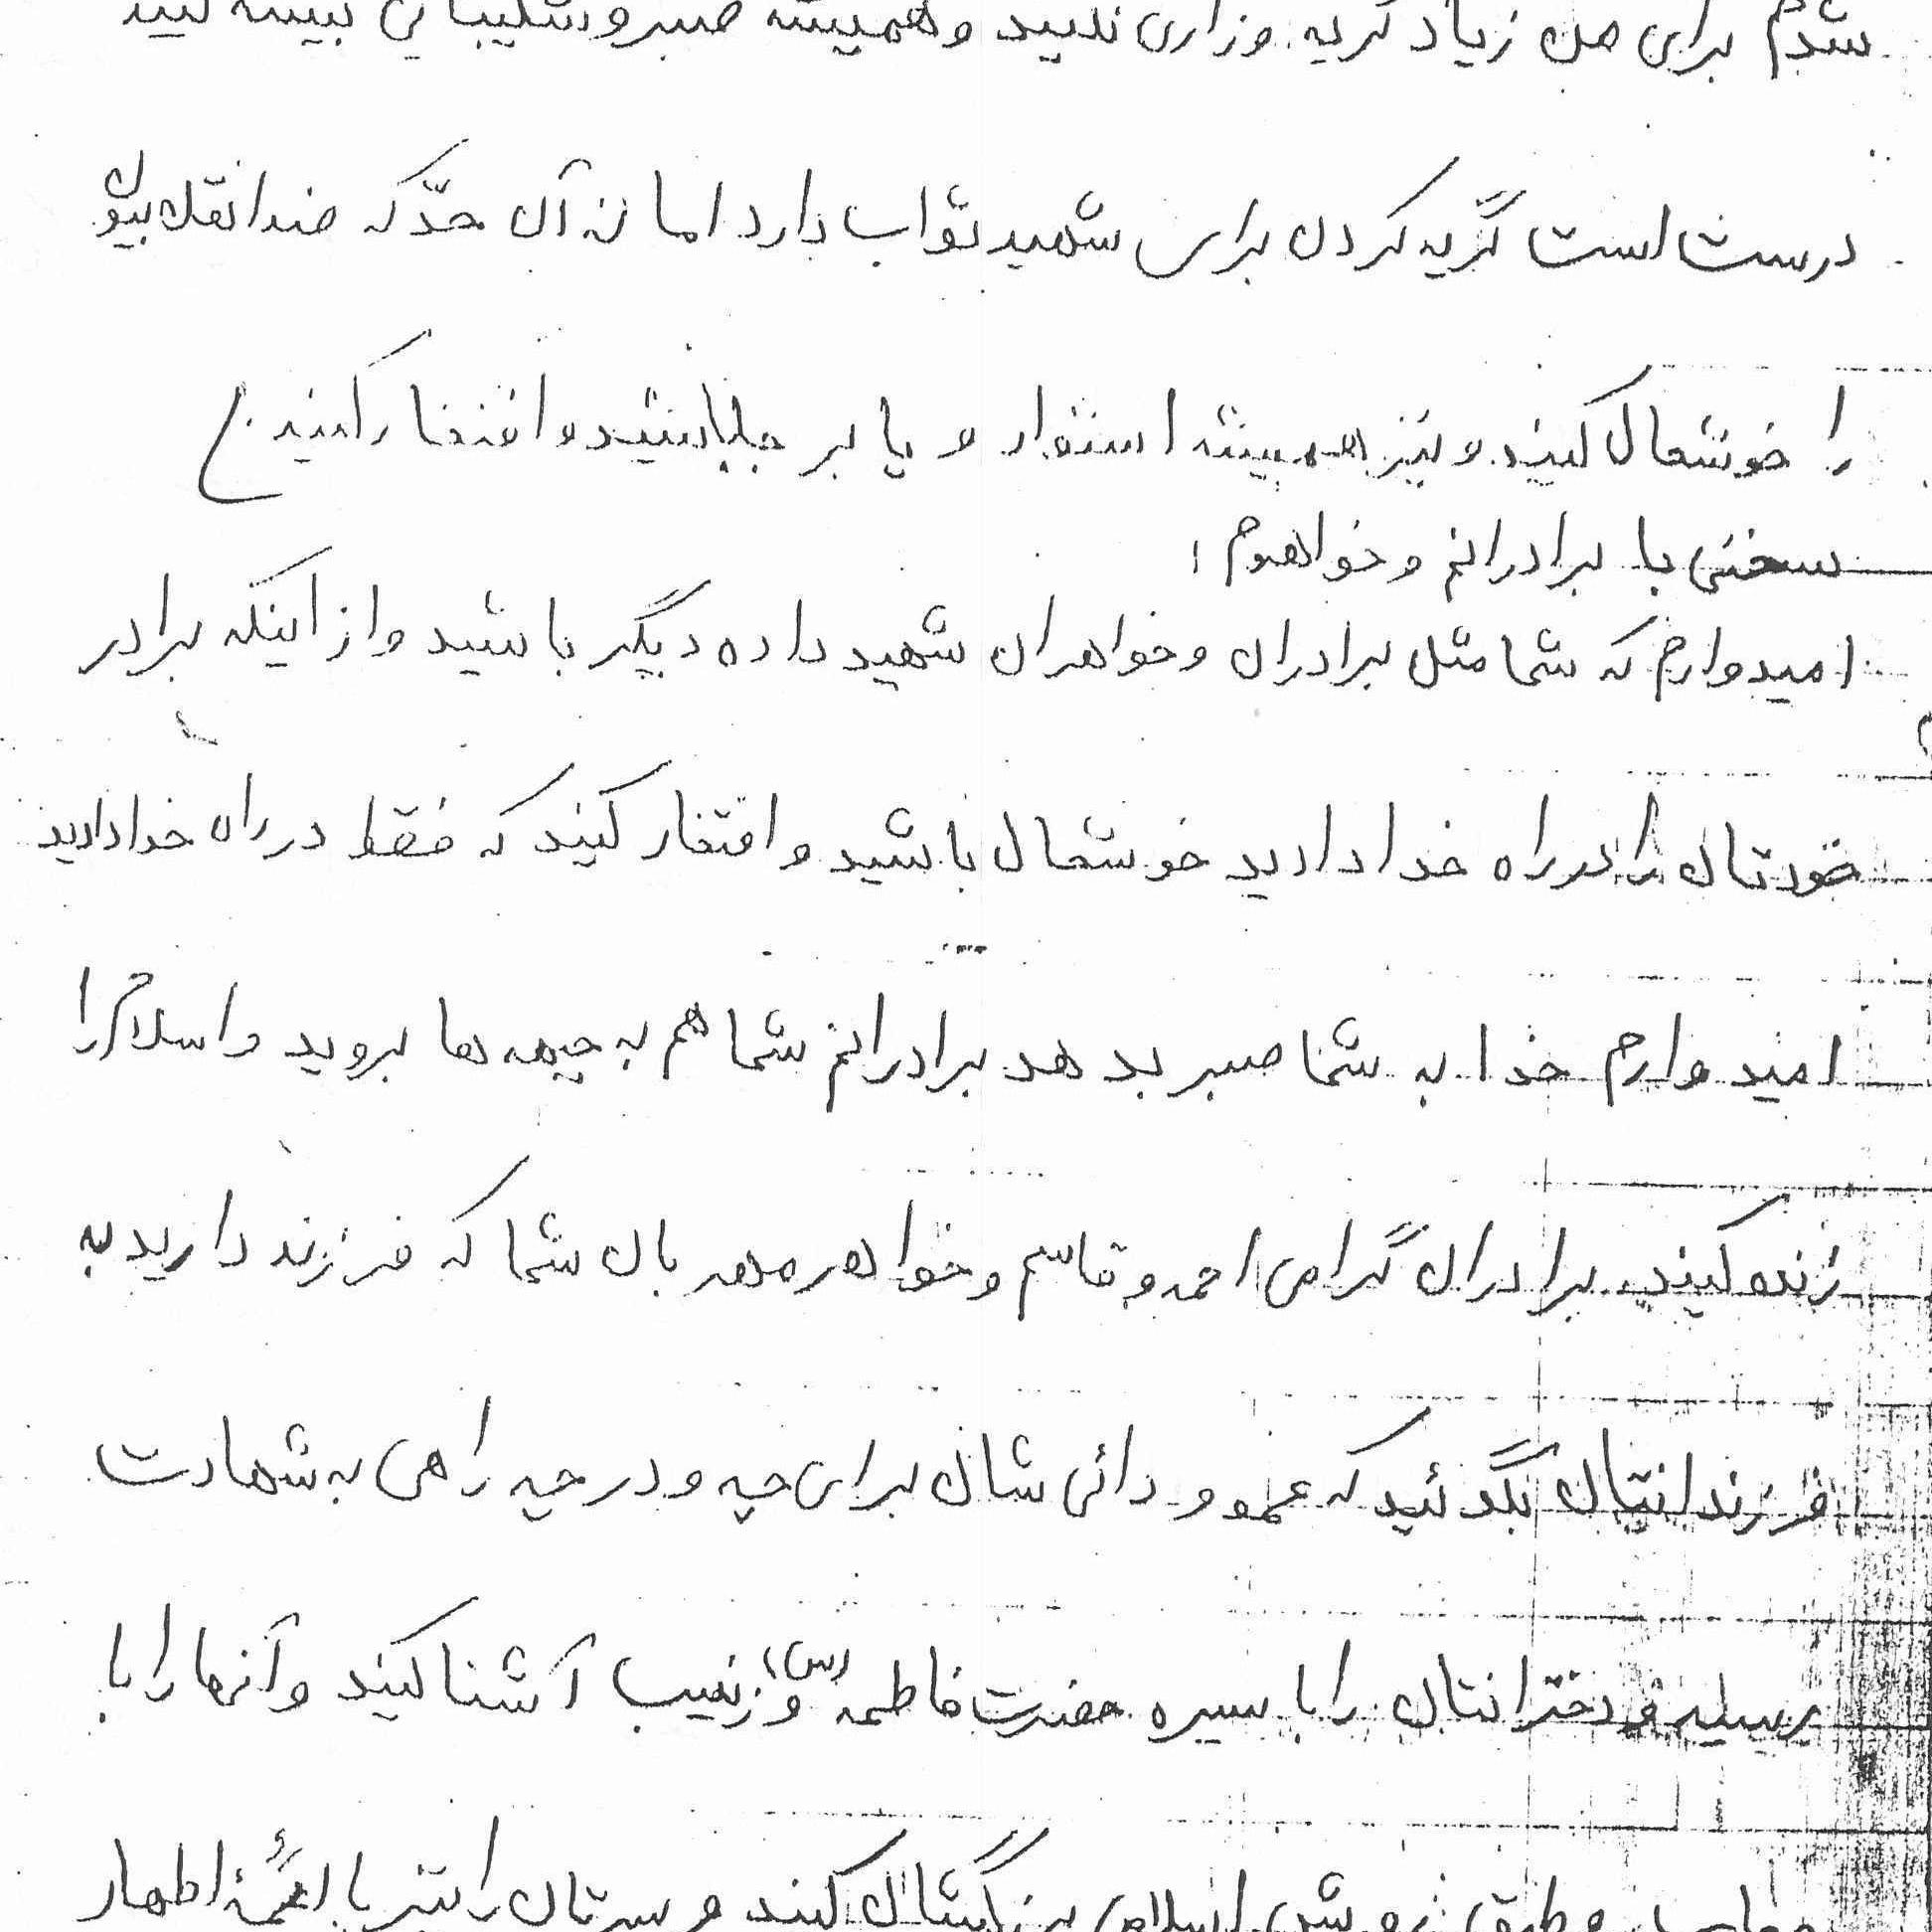 شدم برای من زیاد گریه وزاری نکنید و همیشه صبر و شکیبائی پیشه کنید
درست است گریه کردن برای شهید ثواب دارد اما نه آن حدّ که ضد انقلابیون
را خوشحال کنید و نیز همیشه استوار و پا بر جا باشید و افتخار کنید
سخنی با برادرانم و خواهرم :
امیدوارم که شما مثل برادران و خواهران شهید داده دیگر باشید و از اینکه برادر
خودتان را در راه خدا دادید خوشحال باشید و افتخار کنید که فقط در راه خدا دادید
امیدوارم خدا به شما صبر بدهد برادرانم شما هم به جبهه ها بروید و اسلام را
زنده کنید. برادران گرامی احمد و قاسم و خواهر مهربان شما که فرزند دارید به
فرزندانتان بگوئید که عمو و دائی شان برای چه و در چه راهی به شهادت
رسیدند و دخترانتان را با سیره حضرت فاطمه (س) و زینب آشنا کنید و آنها را با
اسلامی بزرگشان کنید و پسرتان را نیز با ائمّۀ اطهار